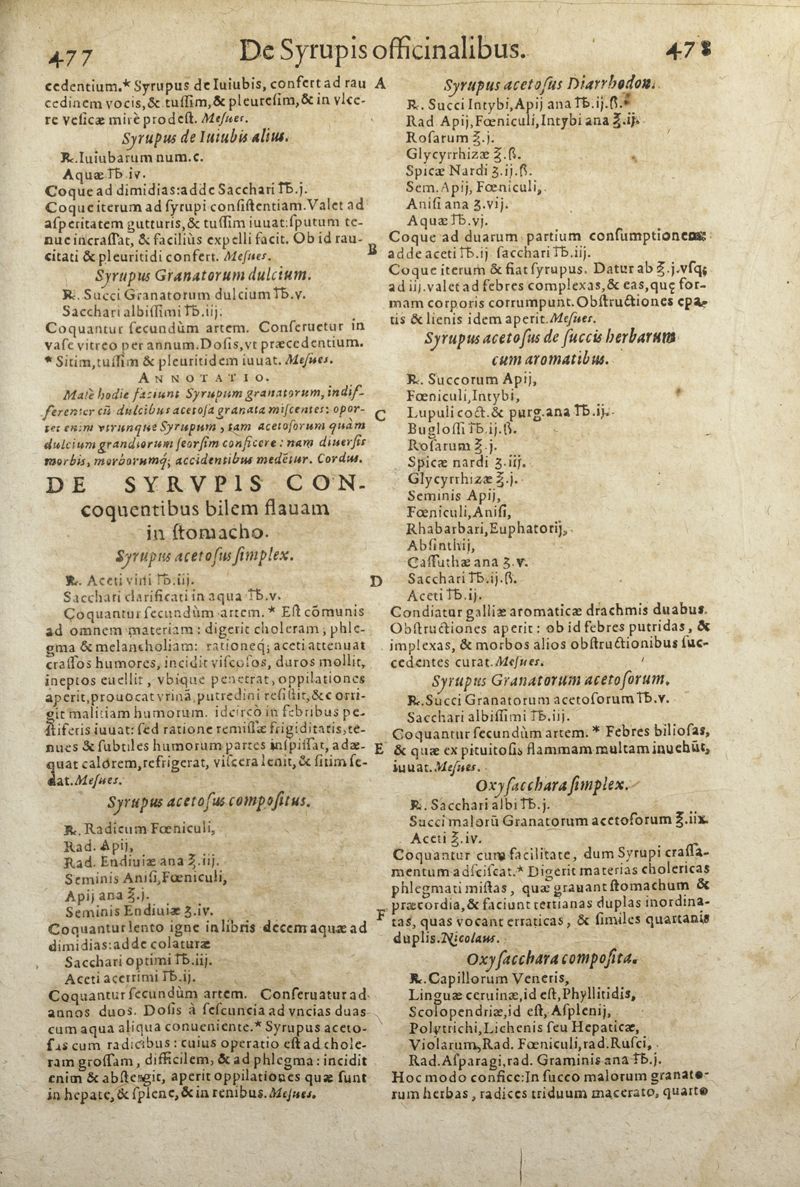 477
De Syrupis officinalibus.
478
cedentium.* Syrupus de Iuiubis, confert ad rau
cedinem vocis,& tuſſim,& pleureſim,& in vlce-
re veſicæ mirè prodeſt. Meſues.
Syrupus de Iuiubis alius.
℞.Iuiubarum num.c.
Aquæ ℔.iv.
Coque ad dimidias:adde Sacchari ℔.j.
Coque iterum ad ſyrupi conſiſtentiam.Valet ad
aſperitatem gutturis,& tuſſim iuuat:ſputum te-
nue incraſſat, & faciliùs expelli facit. Ob id rau-
citati & pleuritidi confert. Meſues.
Syrupus Granatorum dulcium.
℞. Succi Granatorum dulcium ℔.v.
Sacchari albiſſimi ℔.iij.
Coquantur ſecundùm artem. Conſeruetur in
vaſe vitreo per annum.Doſis,vt præcedentium.
* Sitim,tuſſim & pleuritidem iuuat. Meſues.
ANNOTATIO.
Malè hodie faciunt Syrupum granatorum, indif-
ferenter cũ dulcibus acetoſa granata miſcentes: opor-
tet enim vtrunque Syrupum , tam acetoſorum quàm
dulcium grandiorum ſeorſim conficere : nam diuerſis
morbis, morborumq; accidentibus medetur. Cordus.
DE SYRVPIS CON-
coquentibus bilem flauam
in ſtomacho.
Syrupus acetoſus ſimplex.
℞. Aceti vini ℔.iij.
Sacchari clarificati in aqua ℔.v.
Coquantur ſecundùm artem.* Eſt cõmunis
ad omnem materiam : digerit choleram , phle-
gma & melancholiam: rationeq; aceti attenuat
craſſos humores, incidit viſcoſos, duros mollit,
ineptos euellit , vbique penetrat, oppilationes
aperit,prouocat vrinã,putredini reſiſtit,&c orri-
git malitiam humorum. idcircò in febribus pe-
ſtiferis iuuat: ſed ratione remiſſæ frigiditatis,te-
nues & ſubtiles humorum partes inſpiſſat, adæ-
quat calórem,refrigerat, viſcera lenit,& ſitim ſe-
dat.Meſues.
Syrupus acetoſus compoſitus.
℞. Radicum Fœniculi,
Rad. Apij,
Rad. Endiuiæ ana ℥.iij.
Seminis Aniſi,Fœniculi,
Apij ana ℥.j.
Seminis Endiuiæ ʒ.iv.
Coquantur lento igne in libris decem aquæ ad
dimidias:adde colaturæ
Sacchari optimi ℔.iij.
Aceti acerrimi ℔.ij.
Coquantur ſecundùm artem. Conſeruatur ad
annos duos. Doſis à ſeſcuncia ad vncias duas
cum aqua aliqua conueniente.* Syrupus aceto-
ſus cum radicibus : cuius operatio eſt ad chole-
ram groſſam , difficilem, & ad phlegma : incidit
enim & abſtergit, aperit oppilationes quæ ſunt
in hepate, & ſplene, & in renibus. Meſues.
A
B
C
D
E
F
Syrupus acetoſus Diarrhodon.
℞. Succi Intybi,Apij ana ℔.ij.ß.
Rad Apij,Fœniculi,Intybi ana ℥.ij.
Roſarum ℥.j.
Glycyrrhizæ ℥.ß.
Spicæ Nardi ʒ.ij.ß.
Sem. Apij, Fœniculi,
Aniſi ana ʒ.vij.
Aquæ ℔.vj.
Coque ad duarum partium conſumptionem:
adde aceti ℔.ij ſacchari ℔.iij.
Coque iterum & fiat ſyrupus. Datur ab ℥.j.vſq;
ad iij.valet ad febres complexas,& eas,quę for-
mam corporis corrumpunt.Obſtructiones epa-
tis & lienis idem aperit.Meſues.
Syrupus acetoſus de ſuccis herbarum
cum aromatibus.
℞. Succorum Apij,
Fœniculi,Intybi,
Lupuli coct.& purg.ana ℔.ij.
Bugloſſi ℔.ij.ß.
Roſarum ℥.j.
Spicæ nardi ʒ.iij.
Glycyrrhizæ ℥.j.
Seminis Apij,
Fœniculi,Aniſi,
Rhabarbari,Euphatorij,
Abſinthij,
Caſſuthæ ana ʒ.v.
Sacchari ℔.ij.ß.
Aceti ℔.ij.
Condiatur galliæ aromaticæ drachmis duabus.
Obſtructiones aperit : ob id febres putridas , &
implexas, & morbos alios obſtructionibus ſuc-
cedentes curat.Meſues.
Syrupus Granatorum acetoſorum.
℞.Succi Granatorum acetoſorum ℔.v.
Sacchari albiſſimi ℔.iij.
Coquantur ſecundùm artem. * Febres bilioſas,
& quæ ex pituitoſis flammam multam inuehũt,
iuuat.Meſues.
Oxyſacchara ſimplex.
℞. Sacchari albi ℔.j.
Succi malorũ Granatorum acetoſorum ℥.iix.
Aceti ℥.iv.
Coquantur cum facilitate, dum Syrupi craſſa-
mentum adſciſcat.* Digerit materias cholericas
phlegmati miſtas , quæ grauant ſtomachum &
præcordia,& faciunt tertianas duplas inordina-
tas, quas vocant erraticas, & ſimiles quartanis
duplis.Nicolaus.
Oxyſacchara compoſita.
℞.Capillorum Veneris,
Linguæ ceruinæ,id eſt,Phyllitidis,
Scolopendriæ,id eſt, Aſplenij,
Polytrichi,Lichenis ſeu Hepaticæ,
Violarum,Rad. Fœniculi,rad.Ruſci,
Rad.Aſparagi,rad. Graminis ana ℔.j.
Hoc modo confice:In ſucco malorum granato-
rum herbas , radices triduum macerato, quarto